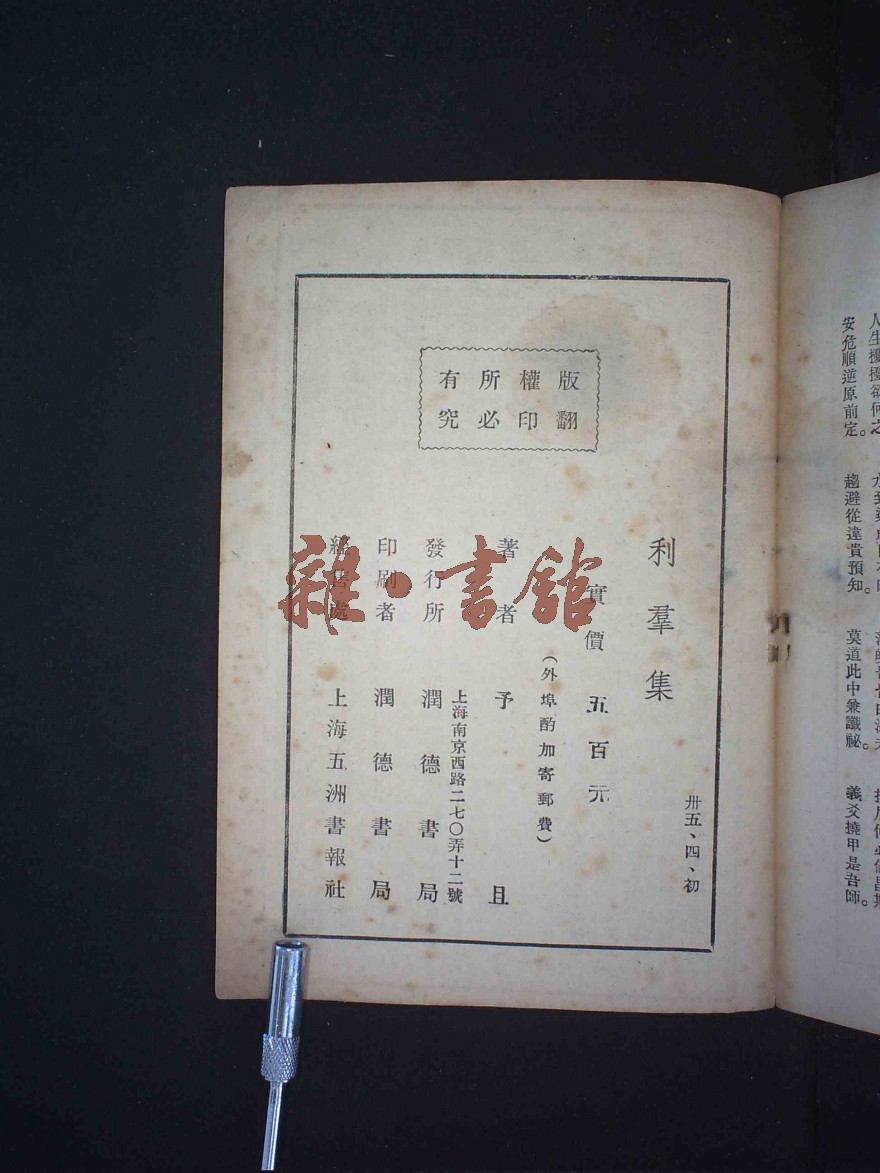 人生擾擾欲何之
安危順逆原前定。
趨避從違貴預知。
莫道此中兼讖祕。
義爻撓甲是吾師。
版權所有
翻印必究
卅五、四、初
利羣集
實價 五百元
(外埠酌加寄郵費)
著者 予且
上海南京西路二七〇弄十二號
發行所 潤德書局
印刷者 潤德書局
經售處 上海五洲書報社
雜·書館